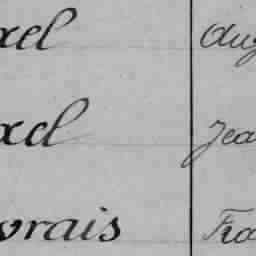 xel Aug
xel Jea
vrais Fra